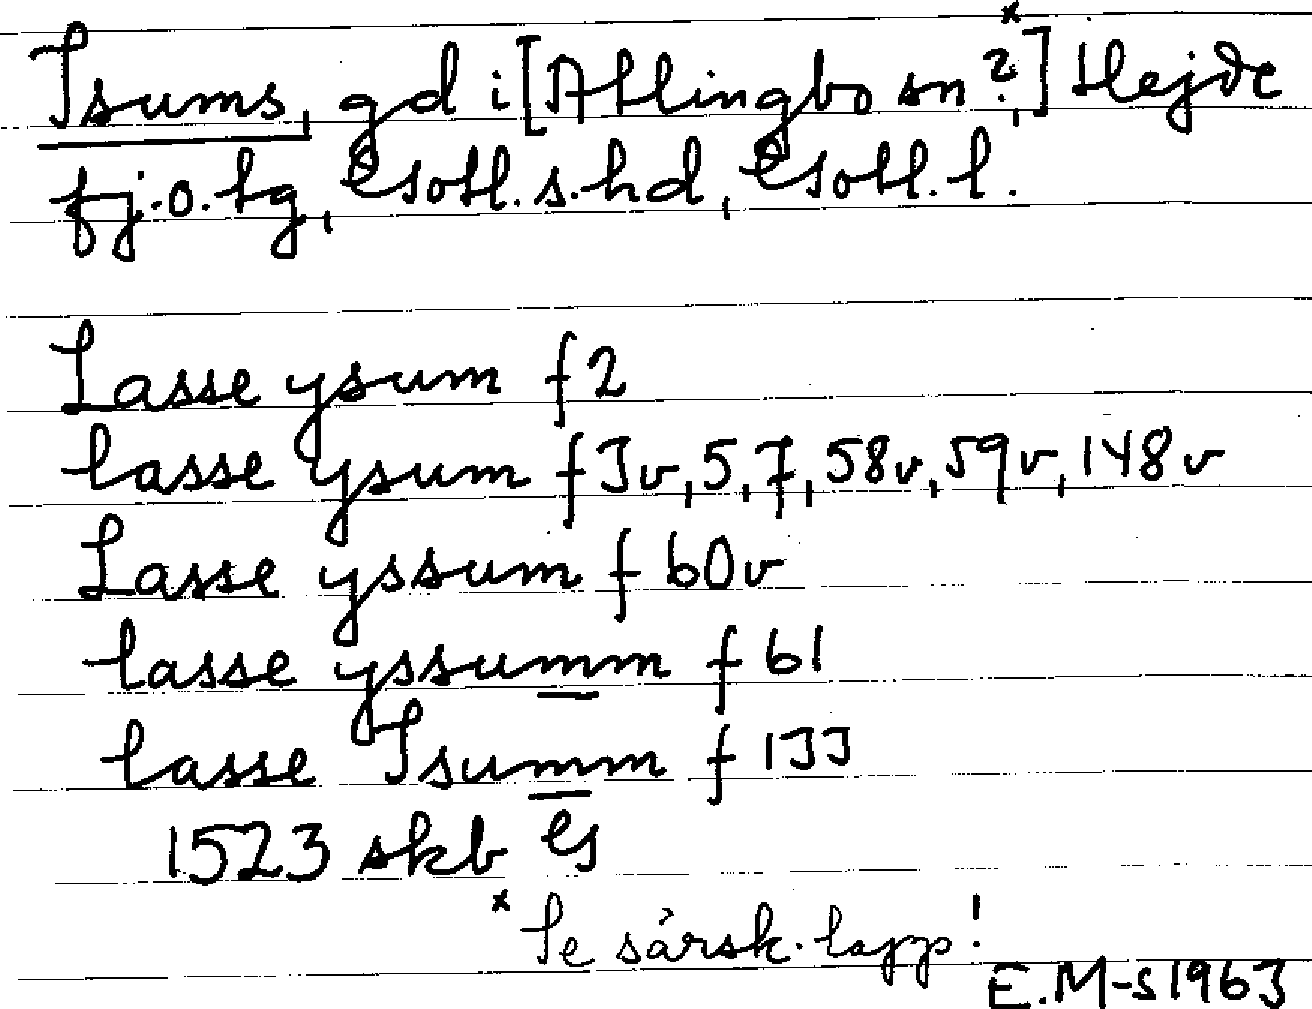 Isums, gd i [Atlingbo sn?,]* Hejde
fj. o. tg, Gotl. s. hd, Gotl. l.
Lasse ysum f 2
lasse ysum f 3v, 5, 7, 58v, 59v, 148v
Lasse yssum f 60v
lasse yssumm f 61
lasse Isumm f 133
1523 skb G
* Se särsk. lapp!
E.M-s 1963